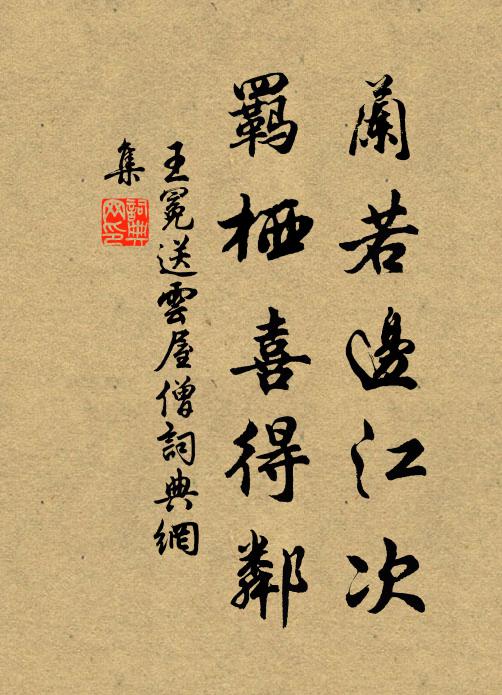 蘭若邊江次
羈栖喜得鄰
王冕送雲屋僧詞典網
集
詞典網印